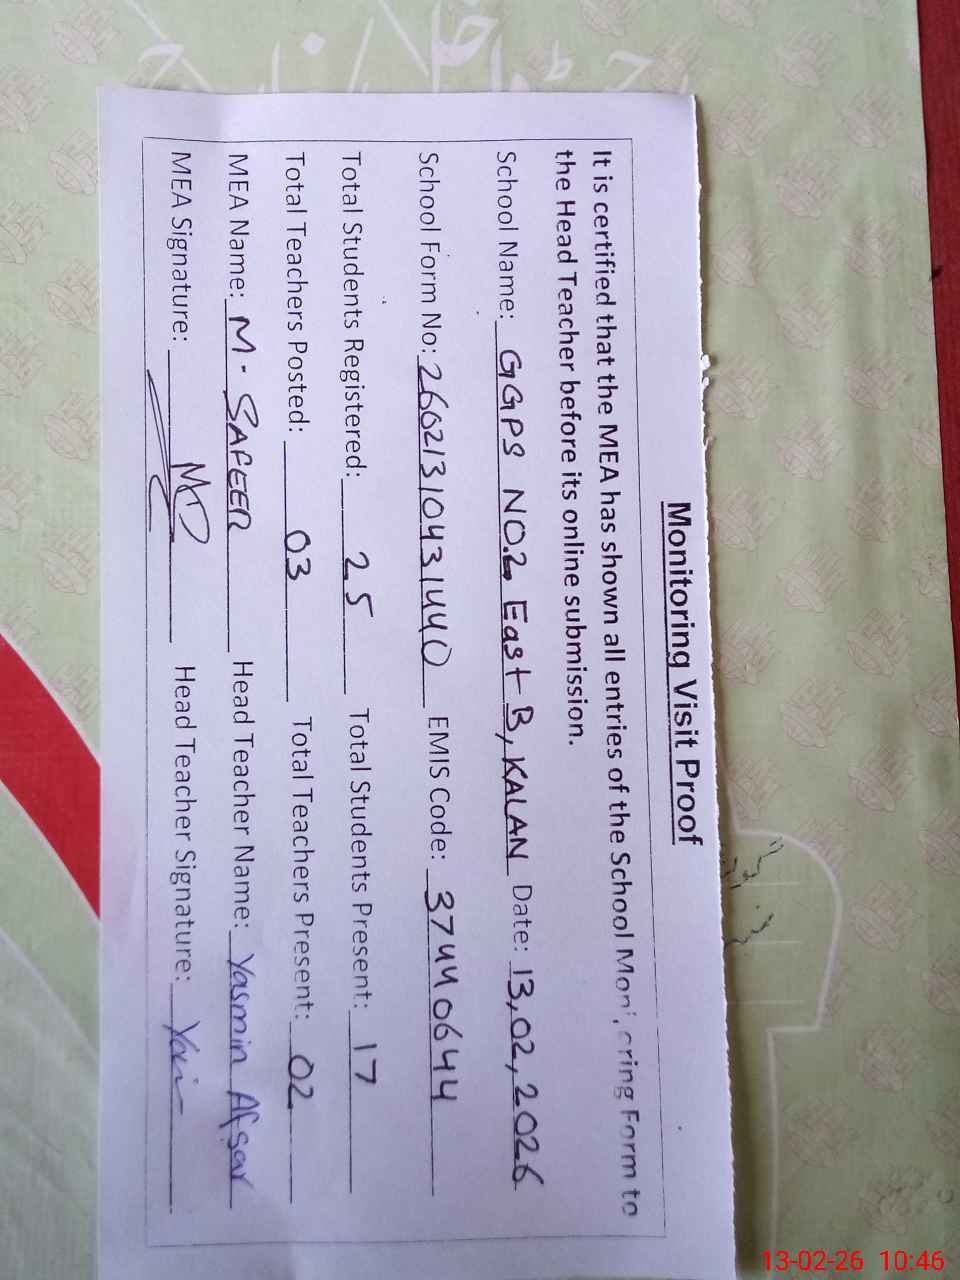 Monitoring Visit Proof
It is certified that the MEA has shown all entries of the School Monitoring Form to
the Head Teacher before its online submission.
School Name: GGPS NO.2, East B, KALAN Date: 13,02,2026
School Form No: 26621310431440 EMIS Code: 37440644
Total Students Registered: 25 Total Students Present: 17
Total Teachers Posted: 03 Total Teachers Present: 02
MEA Name: M. SAFEER Head Teacher Name: Yasmin Afsar
MEA Signature: Head Teacher Signature:
13-02-26 10:46